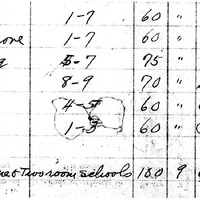 1-7 60 "
1-7 60 "
5-7 75 "
8-9 70 "
4-5 60
1-3 60
Two room schools 180 9